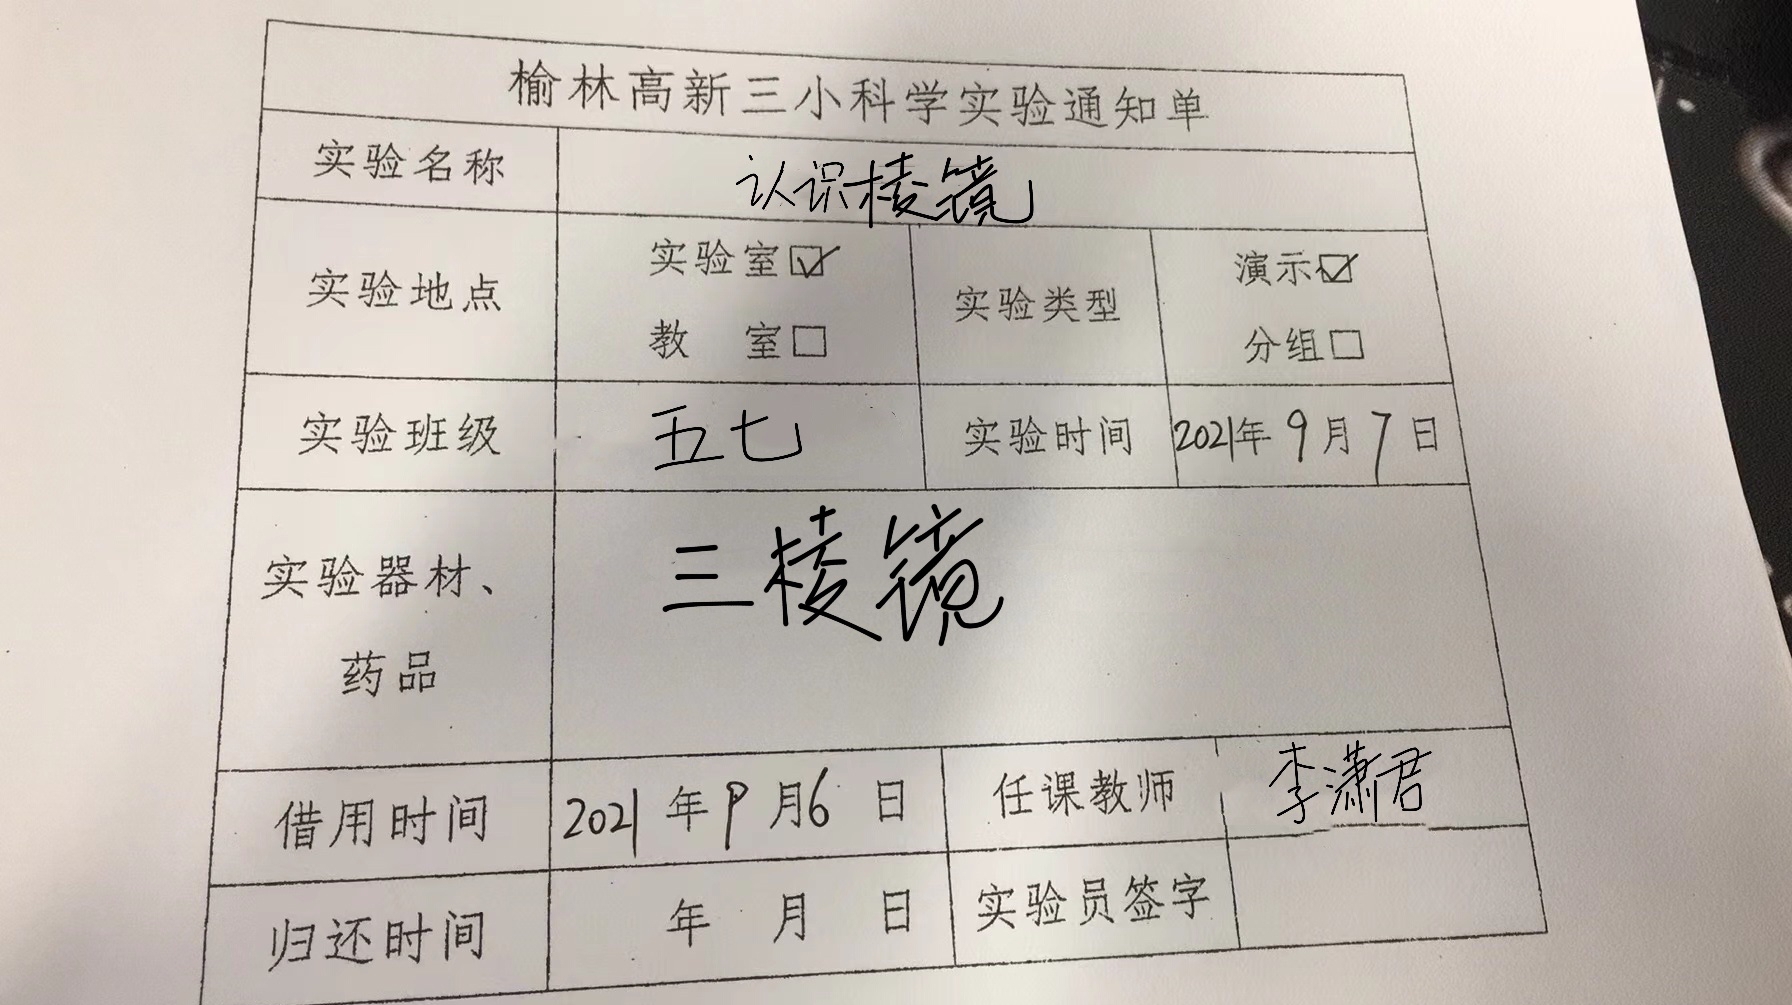 榆林高新三小科学实验通知单
实验名称 认识棱镜
实验地点 实验室☑ 教 室□ 实验类型 演示☑ 分组□
实验班级 五七 实验时间 2021年9月7日
实验器材、药品 三棱镜
借用时间 2021年9月6日 任课教师 李潇君
归还时间 年 月 日 实验员签字